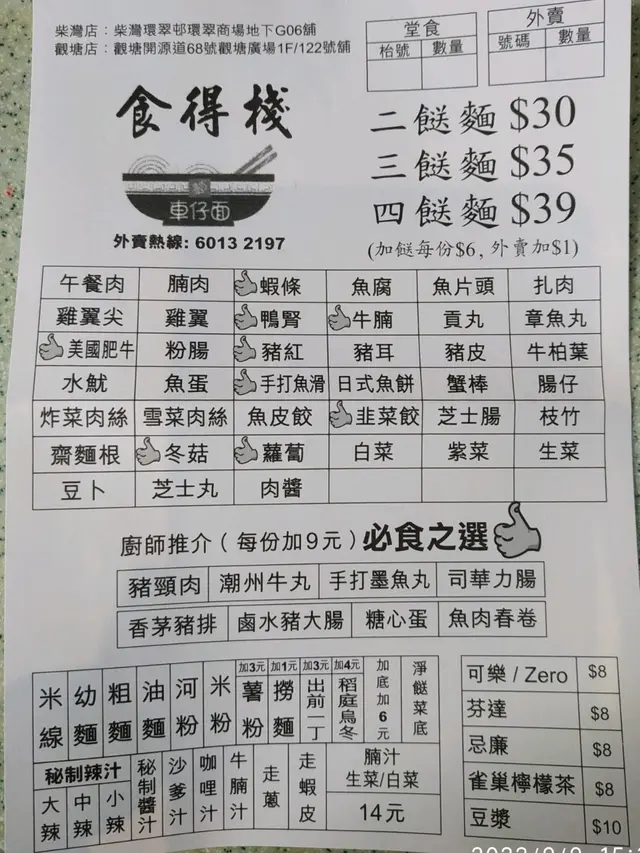 柴灣店：柴灣環翠邨環翠商場地下G06舖
觀塘店：觀塘開源道68號觀塘廣場1F/122號舖
堂食
枱號 數量
外賣
號碼 數量
食得棧
車仔面
外賣熱線: 6013 2197
二餸麵 $30
三餸麵 $35
四餸麵 $39
(加餸每份$6, 外賣加$1)
午餐肉 腩肉 蝦條 魚腐 魚片頭 扎肉
雞翼尖 雞翼 鴨腎 牛腩 貢丸 章魚丸
美國肥牛 粉腸 豬紅 豬耳 豬皮 牛柏葉
水魷 魚蛋 手打魚滑 日式魚餅 蟹棒 腸仔
炸菜肉絲 雪菜肉絲 魚皮餃 韭菜餃 芝士腸 枝竹
齋麵根 冬菇 蘿蔔 白菜 紫菜 生菜
豆卜 芝士丸 肉醬
廚師推介（每份加9元）必食之選
豬頸肉 潮州牛丸 手打墨魚丸 司華力腸
香茅豬排 鹵水豬大腸 糖心蛋 魚肉春卷
米線 幼麵 粗麵 油麵 河粉 米粉 加3元 薯粉 加1元 撈麵 加3元 出前一丁 加4元 稻庭烏冬 加底加6元 淨餸菜底
秘制辣汁
大辣 中辣 小辣 秘制醬汁 沙爹汁 咖哩汁 牛腩汁 走蔥 走蝦皮
腩汁
生菜/白菜
14元
可樂 / Zero $8
芬達 $8
忌廉 $8
雀巢檸檬茶 $8
豆漿 $10